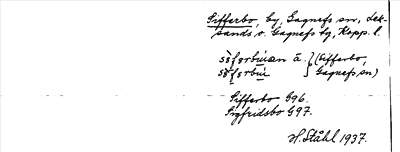 Sifferbo, by, Gagnefs sn, Lek-
sands o. Gagnefs tg, Kopp. l.
(Sifferbo,
Gagnefs sn)
Sifferbo G96.
Sigfridsbo G97.
H. Ståhl 1937.